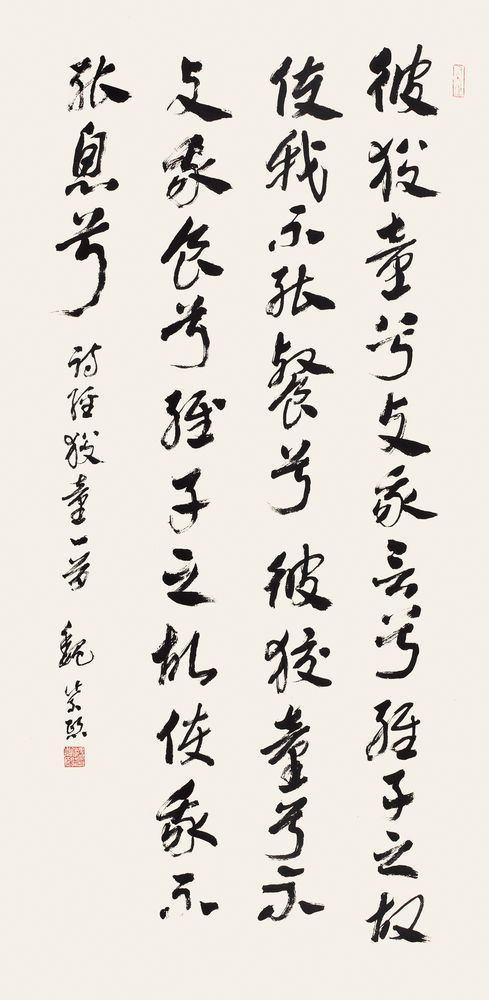 彼狡童兮与我言兮維子之故
使我不能餐兮彼狡童兮不
与我食兮維子之故使我不
能息兮 詩經狡童一首 魏紫熙